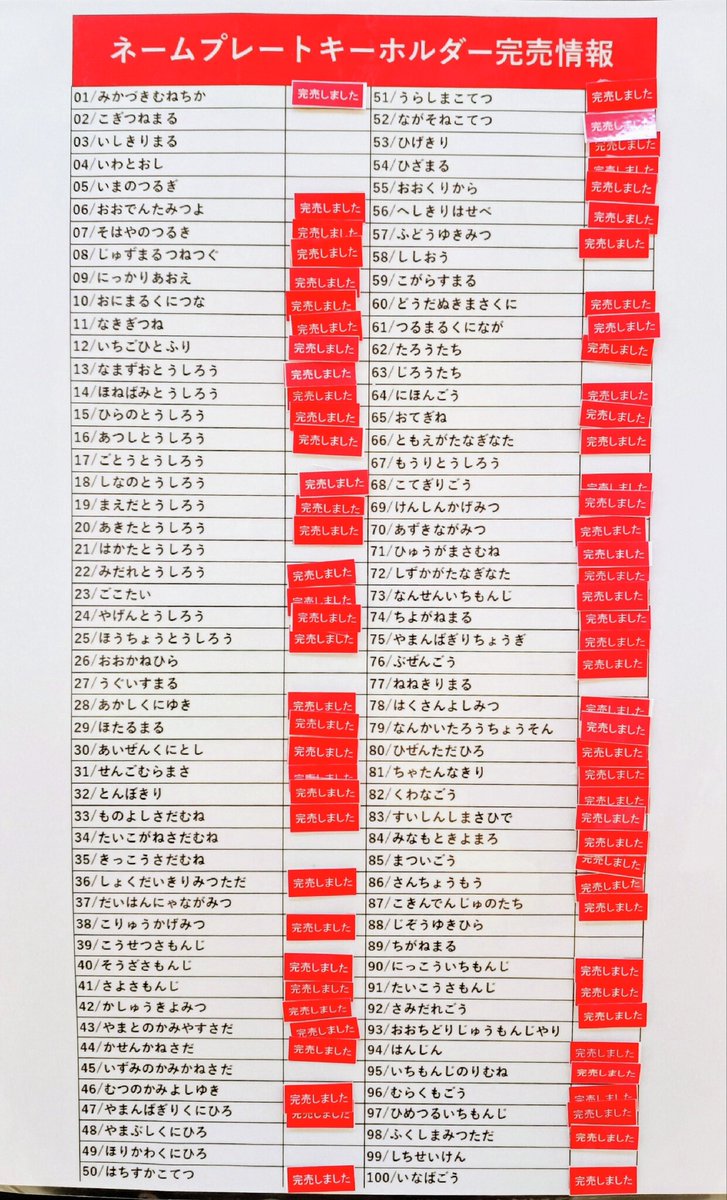 ネームプレートキーホルダー完売情報
01/みかづきむねちか 完売しました
02/こぎつねまる
03/いしきりまる
04/いわとおし
05/いまのつるぎ
06/おおでんたみつよ 完売しました
07/そはやのつるき 完売しました
08/じゅずまるつねつぐ 完売しました
09/にっかりあおえ 完売しました
10/おにまるくにつな 完売しました
11/なきぎつね 完売しました
12/いちごひとふり 完売しました
13/なまずおとうしろう 完売しました
14/ほねばみとうしろう 完売しました
15/ひらのとうしろう 完売しました
16/あつしとうしろう 完売しました
17/ごとうとうしろう
18/しなのとうしろう 完売しました
19/まえだとうしろう 完売しました
20/あきたとうしろう 完売しました
21/はかたとうしろう
22/みだれとうしろう 完売しました
23/ごこたい 完売しました
24/やげんとうしろう 完売しました
25/ほうちょうとうしろう 完売しました
26/おおかねひら
27/うぐいすまる
28/あかしくにゆき 完売しました
29/ほたるまる 完売しました
30/あいぜんくにとし 完売しました
31/せんごむらまさ 完売しました
32/とんぼきり 完売しました
33/ものよしさだむね 完売しました
34/たいこがねさだむね
35/きっこうさだむね
36/しょくだいきりみつただ 完売しました
37/だいはんにゃながみつ
38/こりゅうかげみつ 完売しました
39/こうせつさもんじ
40/そうざさもんじ 完売しました
41/さよさもんじ 完売しました
42/かしゅうきよみつ 完売しました
43/やまとのかみやすさだ 完売しました
44/かせんかねさだ 完売しました
45/いずみのかみかねさだ
46/むつのかみよしゆき 完売しました
47/やまんばぎりくにひろ 完売しました
48/やまぶしくにひろ
49/ほりかわくにひろ
50/はちすかこてつ 完売しました
51/うらしまこてつ 完売しました
52/ながそねこてつ 完売しました
53/ひげきり 完売しました
54/ひざまる 完売しました
55/おおくりから 完売しました
56/へしきりはせべ 完売しました
57/ふどうゆきみつ 完売しました
58/ししおう
59/こがらすまる
60/どうだぬきまさくに 完売しました
61/つるまるくになが 完売しました
62/たろうたち 完売しました
63/じろうたち
64/にほんごう 完売しました
65/おてぎね 完売しました
66/ともえがたなぎなた 完売しました
67/もうりとうしろう
68/こてぎりごう 完売しました
69/けんしんかげみつ 完売しました
70/あずきながみつ 完売しました
71/ひゅうがまさむね 完売しました
72/しずかがたなぎなた 完売しました
73/なんせんいちもんじ 完売しました
74/ちよがねまる 完売しました
75/やまんばぎりちょうぎ 完売しました
76/ぶぜんごう 完売しました
77/ねねきりまる
78/はくさんよしみつ 完売しました
79/なんかいたろうちょうそん 完売しました
80/ひぜんただひろ 完売しました
81/ちゃたんなきり 完売しました
82/くわなごう 完売しました
83/すいしんしまさひで 完売しました
84/みなもときよまろ 完売しました
85/まついごう 完売しました
86/さんちょうもう 完売しました
87/こきんでんじゅのたち 完売しました
88/じぞうゆきひら
89/ちがねまる
90/にっこういちもんじ 完売しました
91/たいこうさもんじ 完売しました
92/さみだれごう 完売しました
93/おおちどりじゅうもんじやり
94/はんじん 完売しました
95/いちもんじのりむね 完売しました
96/むらくもごう 完売しました
97/ひめつるいちもんじ 完売しました
98/ふくしまみつただ 完売しました
99/しちせいけん
100/いなばごう 完売しました